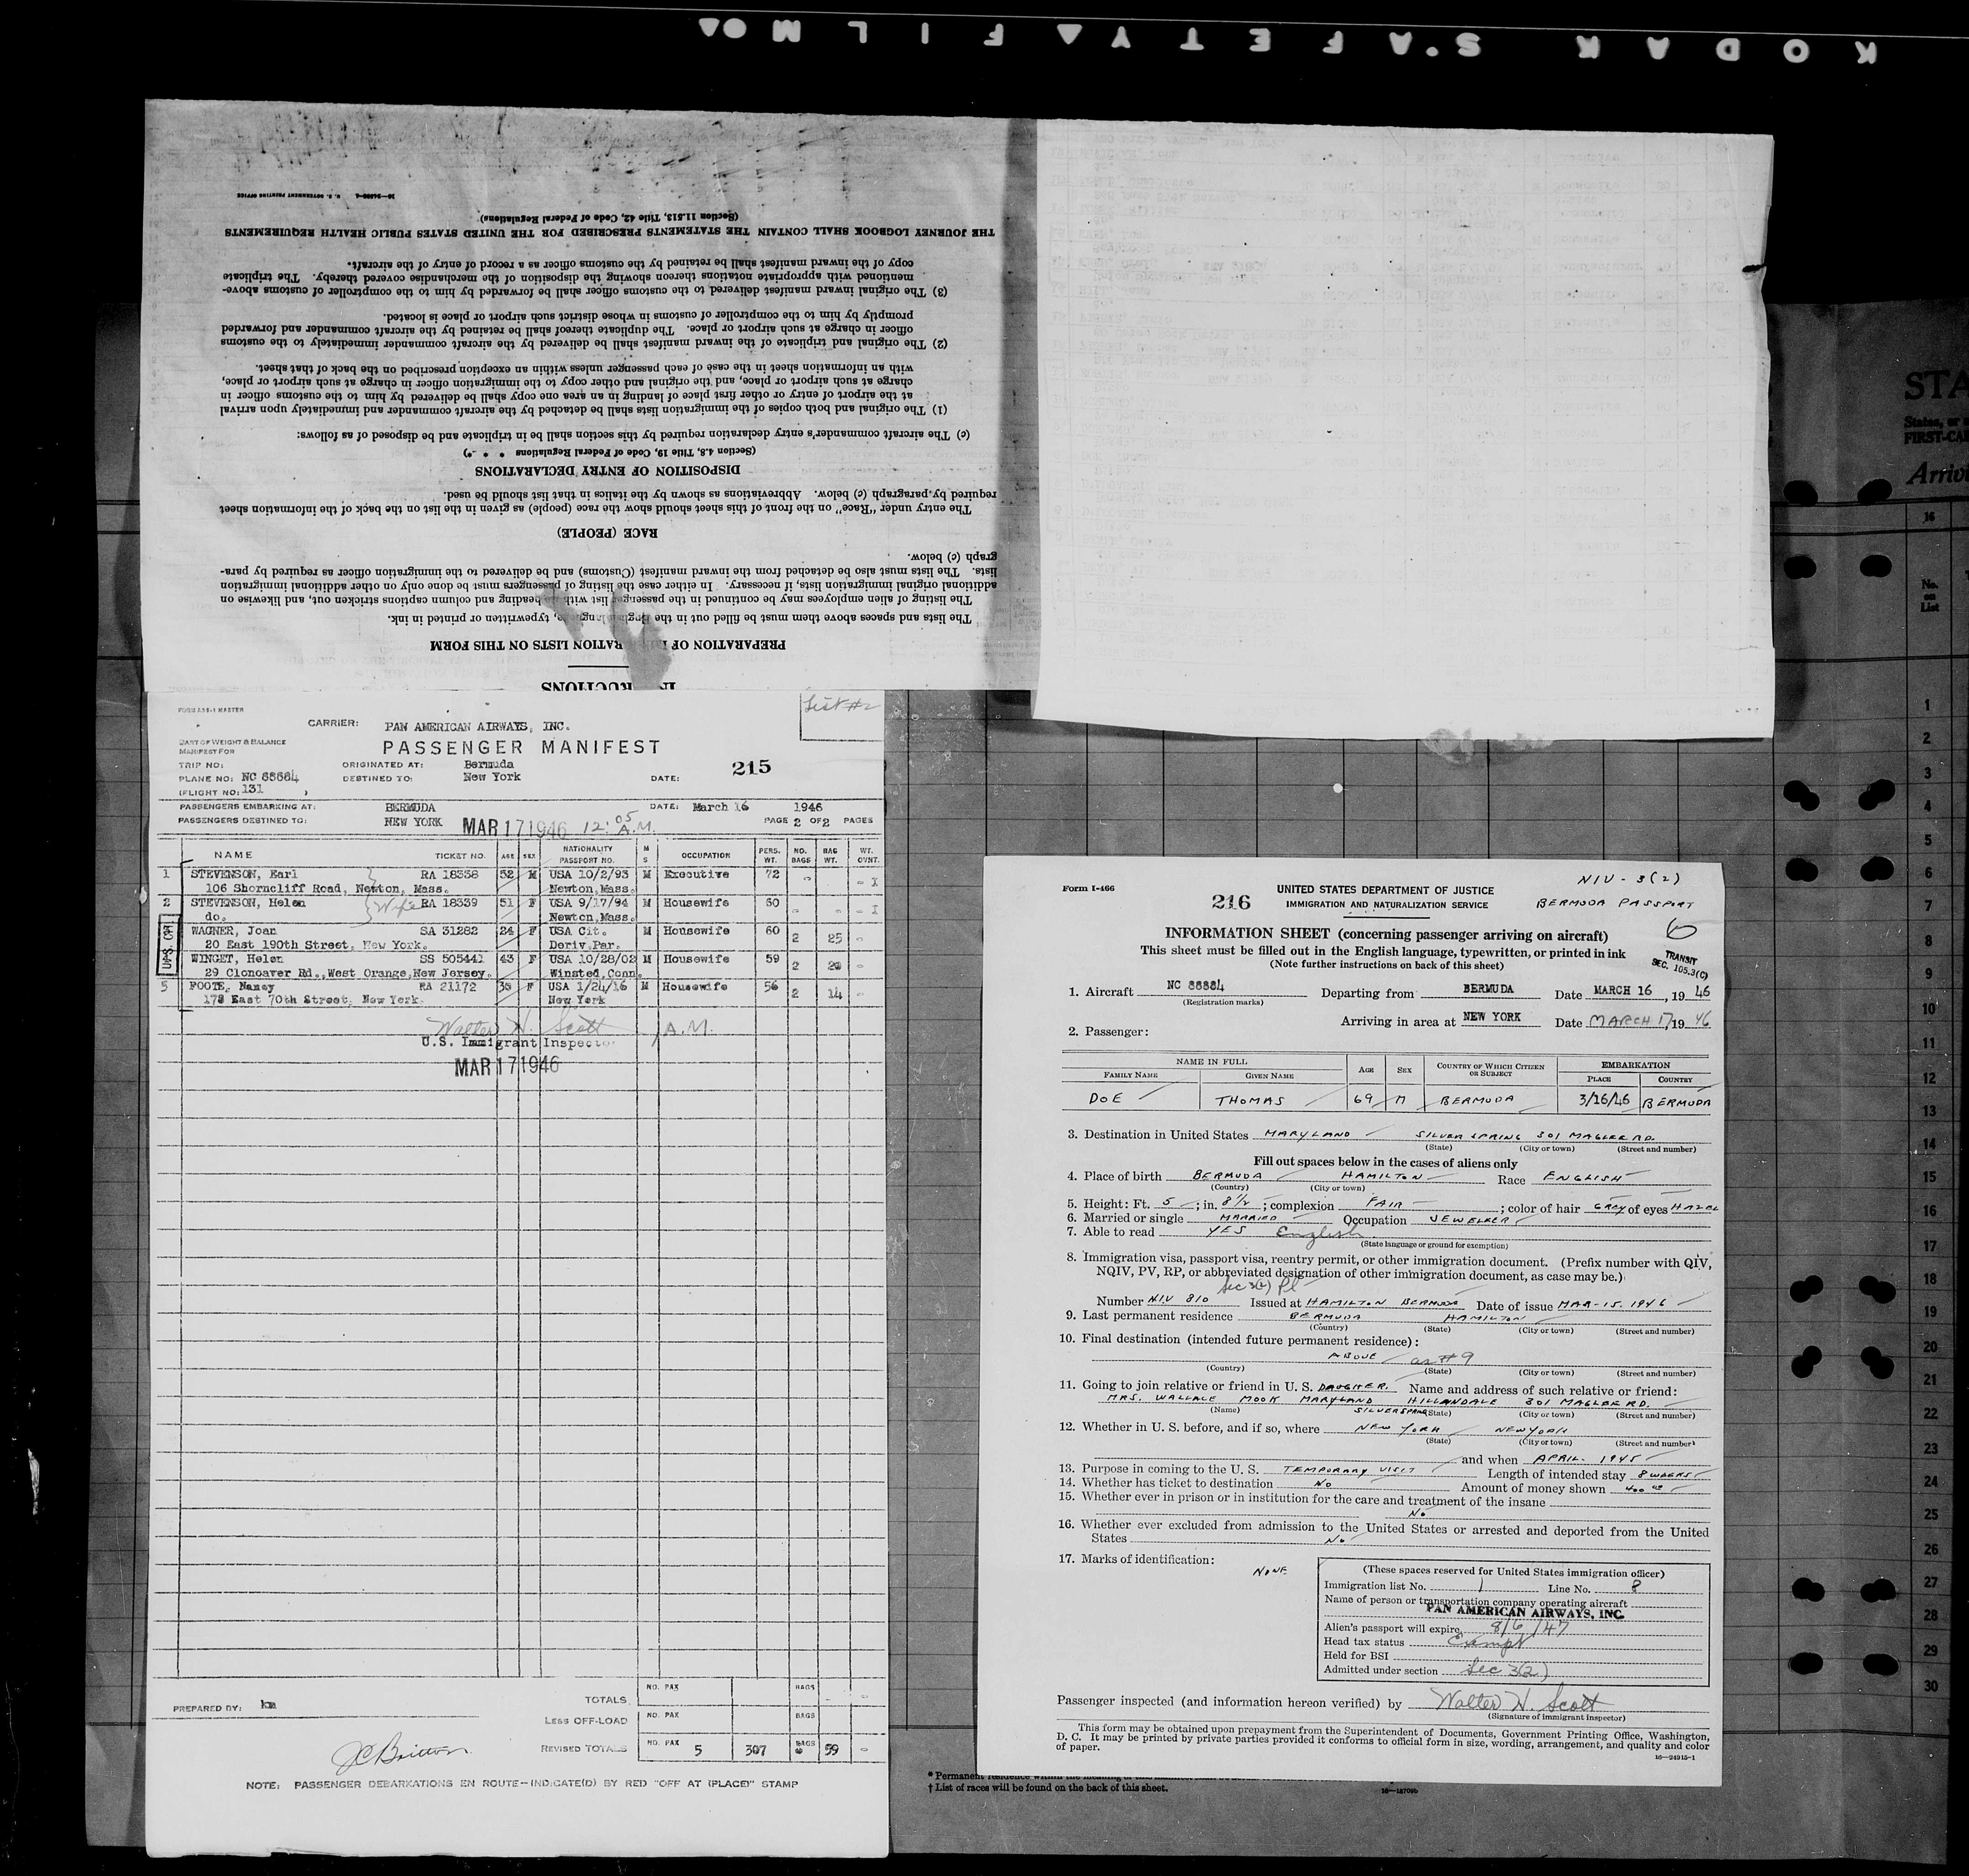 KODAK SAFETY FILM
INSTRUCTIONS
PREPARATION OF IMMIGRATION LISTS ON THIS FORM
The lists and spaces above them must be filled out in the English language, typewritten or printed in ink.
The listing of alien employees may be continued in the passenger list with heading and column captions stricken out, and likewise on
additional original immigration lists, if necessary. In either case the listing of passengers must be done only on other additional immigration
lists. The lists must also be detached from the inward manifest (Customs) and be delivered to the immigration officer as required by para-
graph (c) below.
RACE (PEOPLE)
The entry under "Race" on the front of this sheet should show the race (people) as given in the list on the back of the information sheet
required by paragraph (c) below. Abbreviations as shown by the italics in that list should be used.
DISPOSITION OF ENTRY DECLARATIONS
(Section 4.8, Title 19, Code of Federal Regulations * * *)
(c) The aircraft commander's entry declaration required by this section shall be in triplicate and be disposed of as follows:
(1) The original and both copies of the immigration lists shall be detached by the aircraft commander and immediately upon arrival
at the airport of entry or other first place of landing in an area one copy shall be delivered by him to the customs officer in
charge at such airport or place, and the original and other copy to the immigration officer in charge at such airport or place,
with an information sheet in the case of each passenger unless within an exception prescribed on the back of that sheet.
(2) The original and triplicate of the inward manifest shall be delivered by the aircraft commander immediately to the customs
officer in charge at such airport or place. The duplicate thereof shall be retained by the aircraft commander and forwarded
promptly by him to the comptroller of customs in whose district such airport or place is located.
(3) The original inward manifest delivered to the customs officer shall be forwarded by him to the comptroller of customs above-
mentioned with appropriate notations thereon showing the disposition of the merchandise covered thereby. The triplicate
copy of the inward manifest shall be retained by the customs officer as a record of entry of the aircraft.
THE JOURNEY LOGBOOK SHALL CONTAIN THE STATEMENTS PRESCRIBED FOR THE UNITED STATES PUBLIC HEALTH REQUIREMENTS
(Section 11.513, Title 42, Code of Federal Regulations)
U. S. GOVERNMENT PRINTING OFFICE
List #2
CARRIER: PAN AMERICAN AIRWAYS, INC.
PART OF WEIGHT & BALANCE
MANIFEST FOR
PASSENGER MANIFEST
TRIP NO: ORIGINATED AT: Bermuda 215
PLANE NO: NC 88884 DESTINED TO: New York DATE:
(FLIGHT NO: 131 )
PASSENGERS EMBARKING AT: BERMUDA DATE: March 16 1946
PASSENGERS DESTINED TO: NEW YORK MAR 17 1946 12:05 A.M. PAGE 2 OF 2 PAGES
NAME TICKET NO. AGE SEX NATIONALITY PASSPORT NO. M S OCCUPATION PERS. WT. NO. BAGS BAG WT. WT. OVNT.
1 STEVENSON, Earl RA 18338 52 M USA 10/2/93 M Executive 72 - - I
106 Shorncliff Road, Newton, Mass. Newton, Mass.
2 STEVENSON, Helen Wife RA 18339 51 F USA 9/17/94 M Housewife 60 - - - I
do. Newton, Mass.
WAGNER, Joan SA 31282 24 F USA Cit. M Housewife 60 2 25 -
20 East 190th Street, New York. Deriv.Par.
WINGET, Helen SS 505441 43 F USA 10/28/02 M Housewife 59 2 20 -
29 Clonoaver Rd., West Orange, New Jersey. Winsted, Conn.
5 FOOTE, Nancy RA 21172 30 F USA 1/24/16 M Housewife 56 2 14 -
178 East 70th Street, New York. New York
U.S. CIT
Walter H. Scott A.M.
U.S. Immigrant Inspector
MAR 17 1946
PREPARED BY: TOTALS NO. PAX BAGS
LESS OFF-LOAD NO. PAX BAGS
J C Britton REVISED TOTALS NO. PAX 5 307 BAGS 59 -
NOTE: PASSENGER DEBARKATIONS EN ROUTE—INDICATE(D) BY RED "OFF AT (PLACE)" STAMP
NIV - 3(2)
Form I-466
216
UNITED STATES DEPARTMENT OF JUSTICE
IMMIGRATION AND NATURALIZATION SERVICE
BERMUDA PASSPORT
6
INFORMATION SHEET (concerning passenger arriving on aircraft)
This sheet must be filled out in the English language, typewritten, or printed in ink
(Note further instructions on back of this sheet)
TRANSIT
SEC. 105.3(C)
1. Aircraft NC 88884 Departing from BERMUDA Date MARCH 16, 19 46
(Registration marks)
Arriving in area at NEW YORK Date MARCH 17 19 46
2. Passenger:
NAME IN FULL AGE SEX COUNTRY OF WHICH CITIZEN OR SUBJECT EMBARKATION
FAMILY NAME GIVEN NAME PLACE COUNTRY
DOE THOMAS 69 M BERMUDA 3/16/46 BERMUDA
3. Destination in United States MARYLAND SILVER SPRING 301 MAGLEE RD.
(State) (City or town) (Street and number)
Fill out spaces below in the cases of aliens only
4. Place of birth BERMUDA HAMILTON Race ENGLISH
(Country) (City or town)
5. Height: Ft. 5; in. 8 1/2; complexion FAIR; color of hair GREY of eyes HAZEL
6. Married or single MARRIED Occupation JEWELLER
7. Able to read YES English
(State language or ground for exemption)
8. Immigration visa, passport visa, reentry permit, or other immigration document. (Prefix number with QIV,
NQIV, PV, RP, or abbreviated designation of other immigration document, as case may be.)
Sec 3(2) Pl
Number NIV 810 Issued at HAMILTON BERMUDA Date of issue MAR-15. 1946
9. Last permanent residence BERMUDA HAMILTON
(Country) (State) (City or town) (Street and number)
10. Final destination (intended future permanent residence):
ABOVE as #9
(Country) (State) (City or town) (Street and number)
11. Going to join relative or friend in U. S. DAUGHTER. Name and address of such relative or friend:
MRS. WALLACE MOOK MARYLAND HILLANDALE 301 MAGLEE RD.
(Name) SILVERSPRING (State) (City or town) (Street and number)
12. Whether in U. S. before, and if so, where NEW YORK NEW YORK
(State) (City or town) (Street and number)
and when APRIL. 1945
13. Purpose in coming to the U. S. TEMPORARY VISIT Length of intended stay 8 WEEKS
14. Whether has ticket to destination NO Amount of money shown 400 00
15. Whether ever in prison or in institution for the care and treatment of the insane
NO
16. Whether ever excluded from admission to the United States or arrested and deported from the United
States NO
17. Marks of identification: NONE
(These spaces reserved for United States immigration officer)
Immigration list No. 1 Line No. 8
Name of person or transportation company operating aircraft
PAN AMERICAN AIRWAYS, INC.
Alien's passport will expire 8/6/47
Head tax status Exempt
Held for BSI
Admitted under section Sec 3(2)
Passenger inspected (and information hereon verified) by Walter H. Scott
(Signature of immigrant inspector)
This form may be obtained upon prepayment from the Superintendent of Documents, Government Printing Office, Washington,
D. C. It may be printed by private parties provided it conforms to official form in size, wording, arrangement, and quality and color
of paper.
16—24915-1
* Permanent residence within the meaning of
† List of races will be found on the back of this sheet.
16—18709b
STA
States, or
FIRST-CA
Arriv
16
No. on List
1
2
3
4
5
6
7
8
9
10
11
12
13
14
15
16
17
18
19
20
21
22
23
24
25
26
27
28
29
30